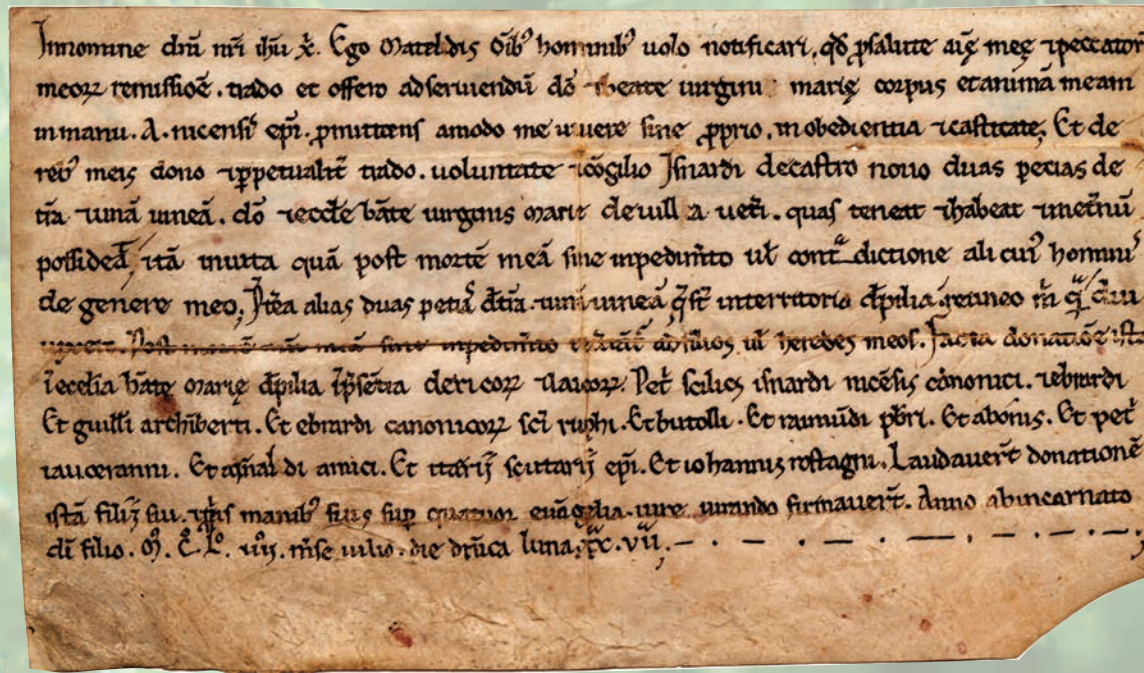 Innomine dn̄i nr̄i ih̄u x̄. Ego Mateldis oīb᷒ hominib᷒ uolo notificari. qd̄ ꝓsalute aīę meę ⁊peccator̄
meoꝝ remissiōē. trado et offero adseruiendū dō ⁊beate uirgini marię corpus etanimā meam
inmanu. A. nicensi ep̄i. ꝓmittens amodo me uiuere sine ꝓprio. inobedientia ⁊castitate; Et de
reb᷒ meis dono ⁊ꝑpetualit̄ trado. uoluntate ⁊cōsilio Isnardi decastro nouo duas pecias de
tr̄a ⁊unā uineā. dō ⁊eccl̄e bāte uirginis Marie deuilla uet̄i. quas teneat ⁊habeat ⁊inet̄nū
possideat̄, itā inuita quā post mortē meā sine inpedim̄to ul̄ contᵃdictione alicui᷒ hominis
de genere meo; P̄tēa alias duas petias dt̄ra ⁊unā uineā q̄ sт̄ interritorio dp̄ilia retineo m̄ qᵃ diu
uixero. Post mortē meā sine inpedim̄to adfilios ul̄ heredes meos. Facta donatiōe ista
ī eccl̄ia bāte Marię dp̄ilia īp̄sētia clericoꝝ ⁊laicoꝝ. Pet̄ scilicȝ isnardi nicēsis canonici. ⁊ebrardi
Et guill̄i archīberti. Et ebrardi canonicoꝝ sc̄i ruphi. Et butolli. Et raimūdi pb̄ri. Et abonis. Et pet̄
lauceranni. Et arnal̄di amici. Et scutarij ep̄i. Et iohannis rostagni. Laudauer̄t donationē
istā filij sui. ⁊ꝓp̄is manib᷒ suis sup̄ quatuor euāgelia iure iurando firmauer̄t. Anno abincarnato
dī filio. M̊. C̊. L̊. m̄se iulio. die dn̄ica luna. xx. vii;